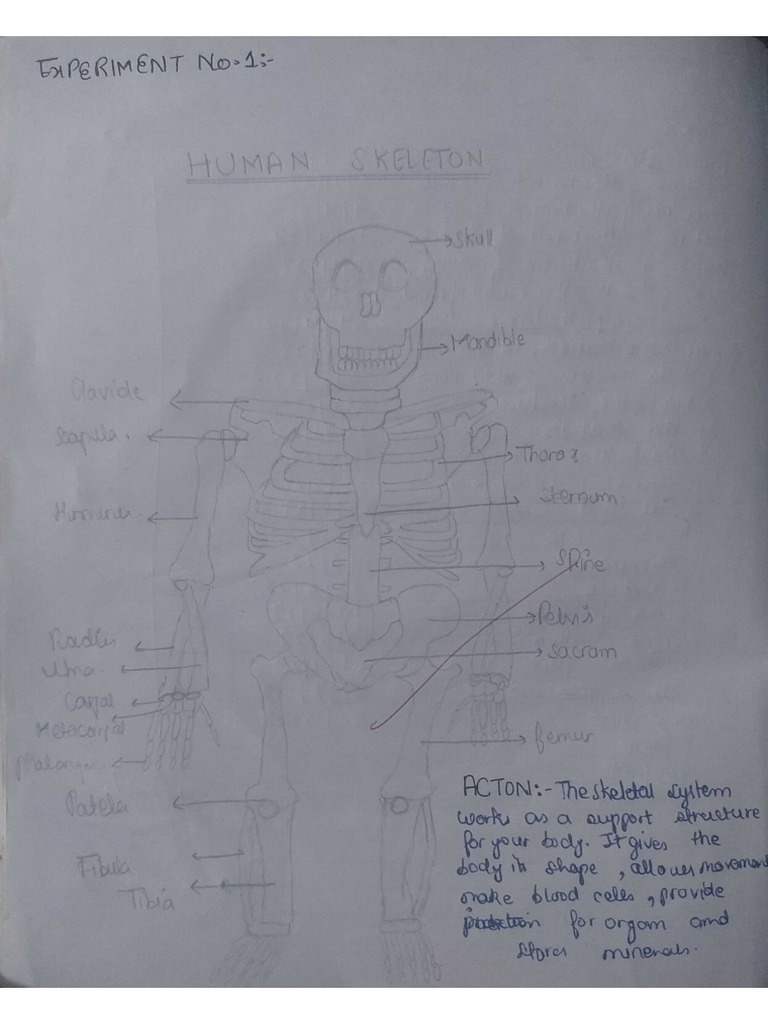 EXPERIMENT No.1:-
HUMAN SKELETON
Skull
Mandible
Clavide
Scapula.
Thorax
Sternum
Humerus
Spine
Pelvis
Sacram
Radius
Ulna
Carpal
Metacarpal
Phalanges
femur
Patela
Fibula
Tibia
ACTON:- The skeletal system
works as a support structure
for your body. It gives the
body its shape, allows movement
make blood cells, provide
for organ and
stores minerals.